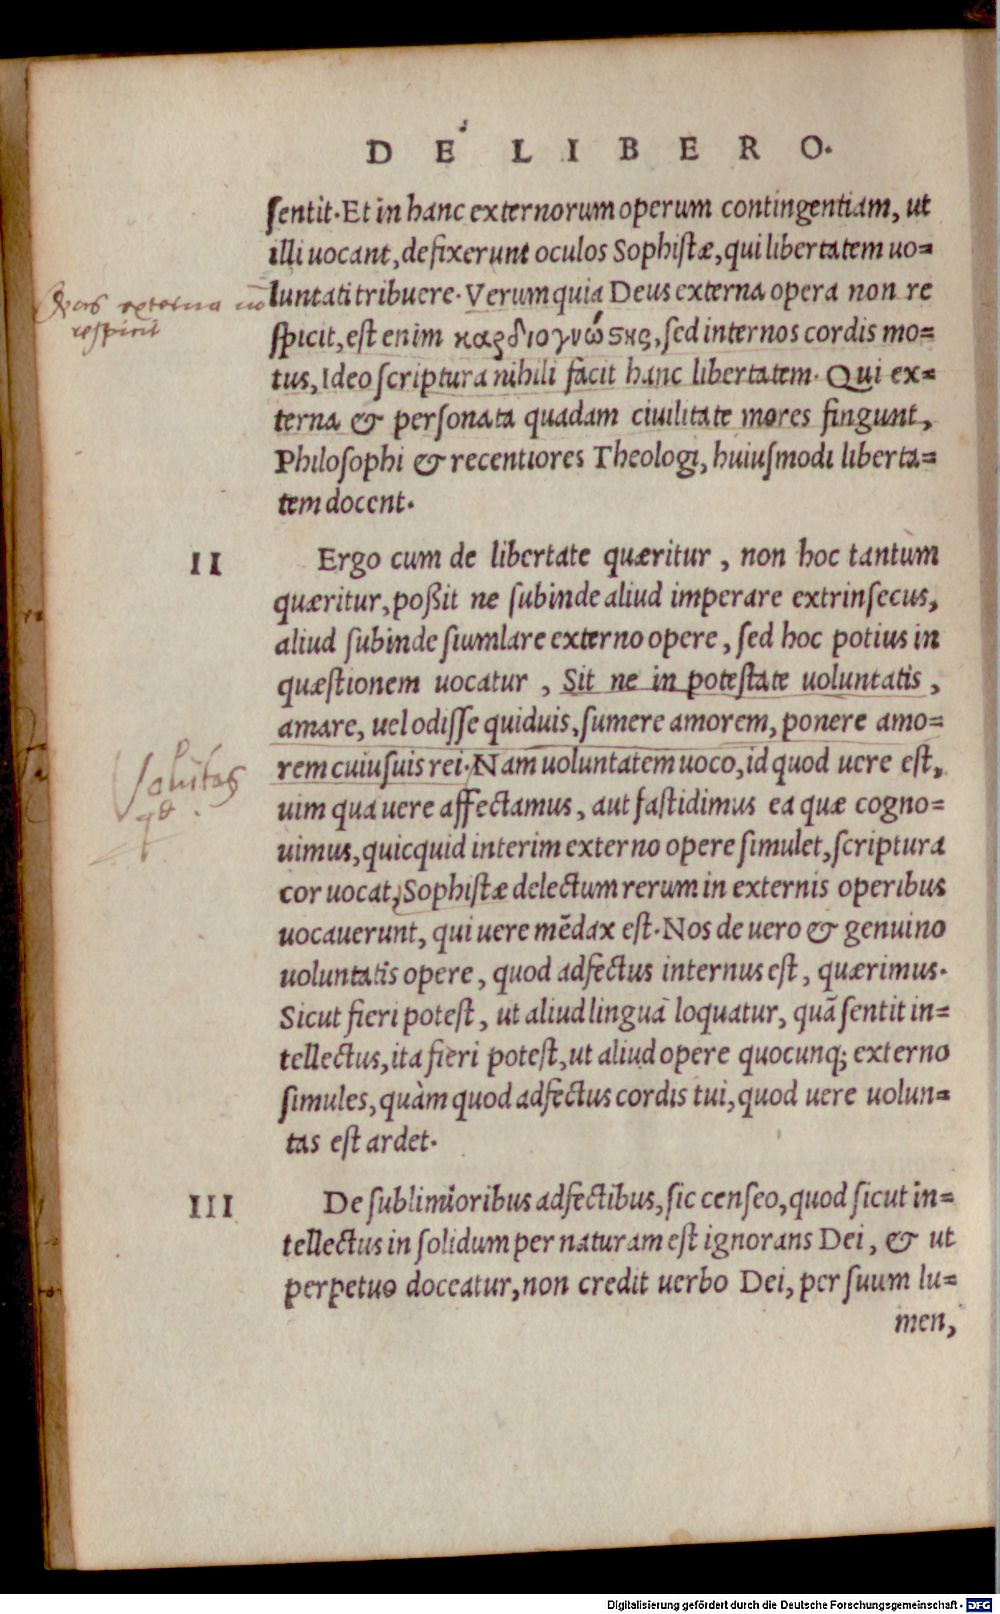 DE LIBERO.
ſentit. Et in hanc externorum operum contingentiam, ut
illi uocant, defixerunt oculos Sophiſtæ, qui libertatem uo=
luntati tribuere. Verum quia Deus externa opera non re
ſpicit, eſt enim καρδιογνώςης, ſed internos cordis mo=
tus, Ideo ſcriptura nihili facit hanc libertatem. Qui ex=
terna & perſonata quadam ciuilitate mores fingunt,
Philoſophi & recentiores Theologi, huiuſmodi liberta=
tem docent.
II
Ergo cum de libertate quæritur, non hoc tantum
quæritur, poßit ne ſubinde aliud imperare extrinſecus,
aliud ſubinde ſiumlare externo opere, ſed hoc potius in
quæſtionem uocatur, Sit ne in poteſtate uoluntatis,
amare, uel odiſſe quiduis, ſumere amorem, ponere amo=
rem cuiuſuis rei. Nam uoluntatem uoco, id quod uere eſt,
uim qua uere affectamus, aut faſtidimus ea quæ cogno=
uimus, quicquid interim externo opere ſimulet, ſcriptura
cor uocat, Sophiſtæ delectum rerum in externis operibus
uocauerunt, qui uere mẽdax eſt. Nos de uero & genuino
uoluntatis opere, quod adfectus internus eſt, quærimus.
Sicut fieri poteſt, ut aliud linguā loquatur, quā ſentit in=
tellectus, ita fieri poteſt, ut aliud opere quocunq; externo
ſimules, quàm quod adfectus cordis tui, quod uere uolun=
tas eſt ardet.
III
De ſublimioribus adfectibus, ſic cenſeo, quod ſicut in=
tellectus in ſolidum per naturam eſt ignorans Dei, & ut
perpetuo doceatur, non credit uerbo Dei, per ſuum lu=
men,
externa nō
respicit
Voluntas
Digitalisierung gefördert durch die Deutsche Forschungsgemeinschaft - DFG